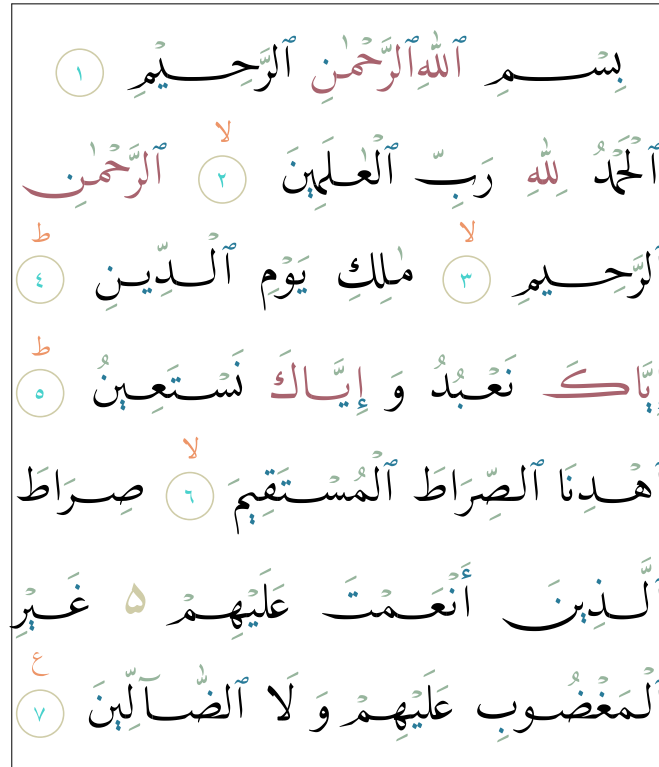 بِسْمِ ٱللّٰهِ ٱلرَّحْمٰنِ ٱلرَّحِيْمِ ١
ٱلْحَمْدُ لِلّٰهِ رَبِّ ٱلْعٰلَمِيْنَ ۙ ٢ ٱلرَّحْمٰنِ
ٱلرَّحِيْمِ ۙ ٣ مٰلِكِ يَوْمِ ٱلْدِّيْنِ ؕ ٤
إِيَّاكَ نَعْبُدُ وَ إِيَّاكَ نَسْتَعِيْنُ ؕ ٥
ٱهْدِنَا ٱلصِّرَاطَ ٱلْمُسْتَقِيْمَ ۙ ٦ صِرَاطَ
ٱلَّذِيْنَ أَنْعَمْتَ عَلَيْهِمْ ۵ غَيْرِ
ٱلْمَغْضُوْبِ عَلَيْهِمْ وَ لَا ٱلضَّآلِّيْنَ ع ٧